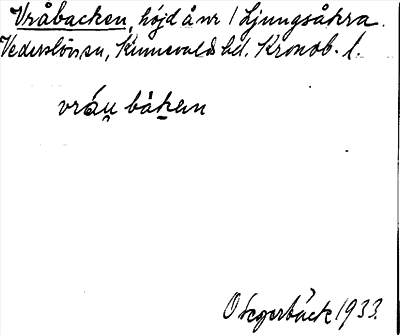 Vråbacken, höjd å nr 1 Ljungsåkra.
Vederslövs sn, Kinnevalds hd. Kronob. l.
vråu̯ bàken
O Segerbäck 1933.